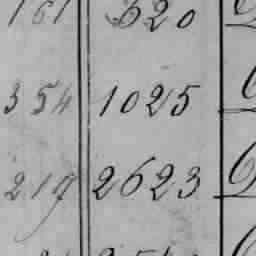 161 520
354 1025
219 2623